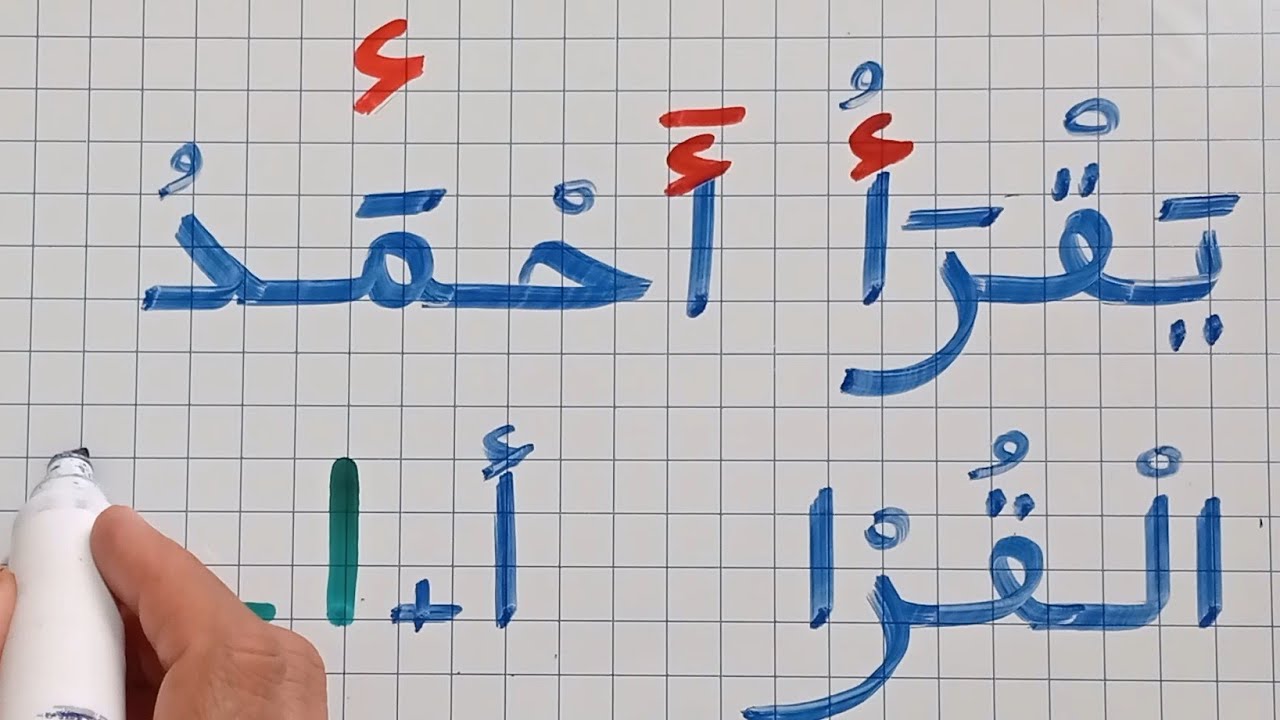 ء
يَقْرَأُ أَحْمَدُ
الْقُرْا أَ + ا =